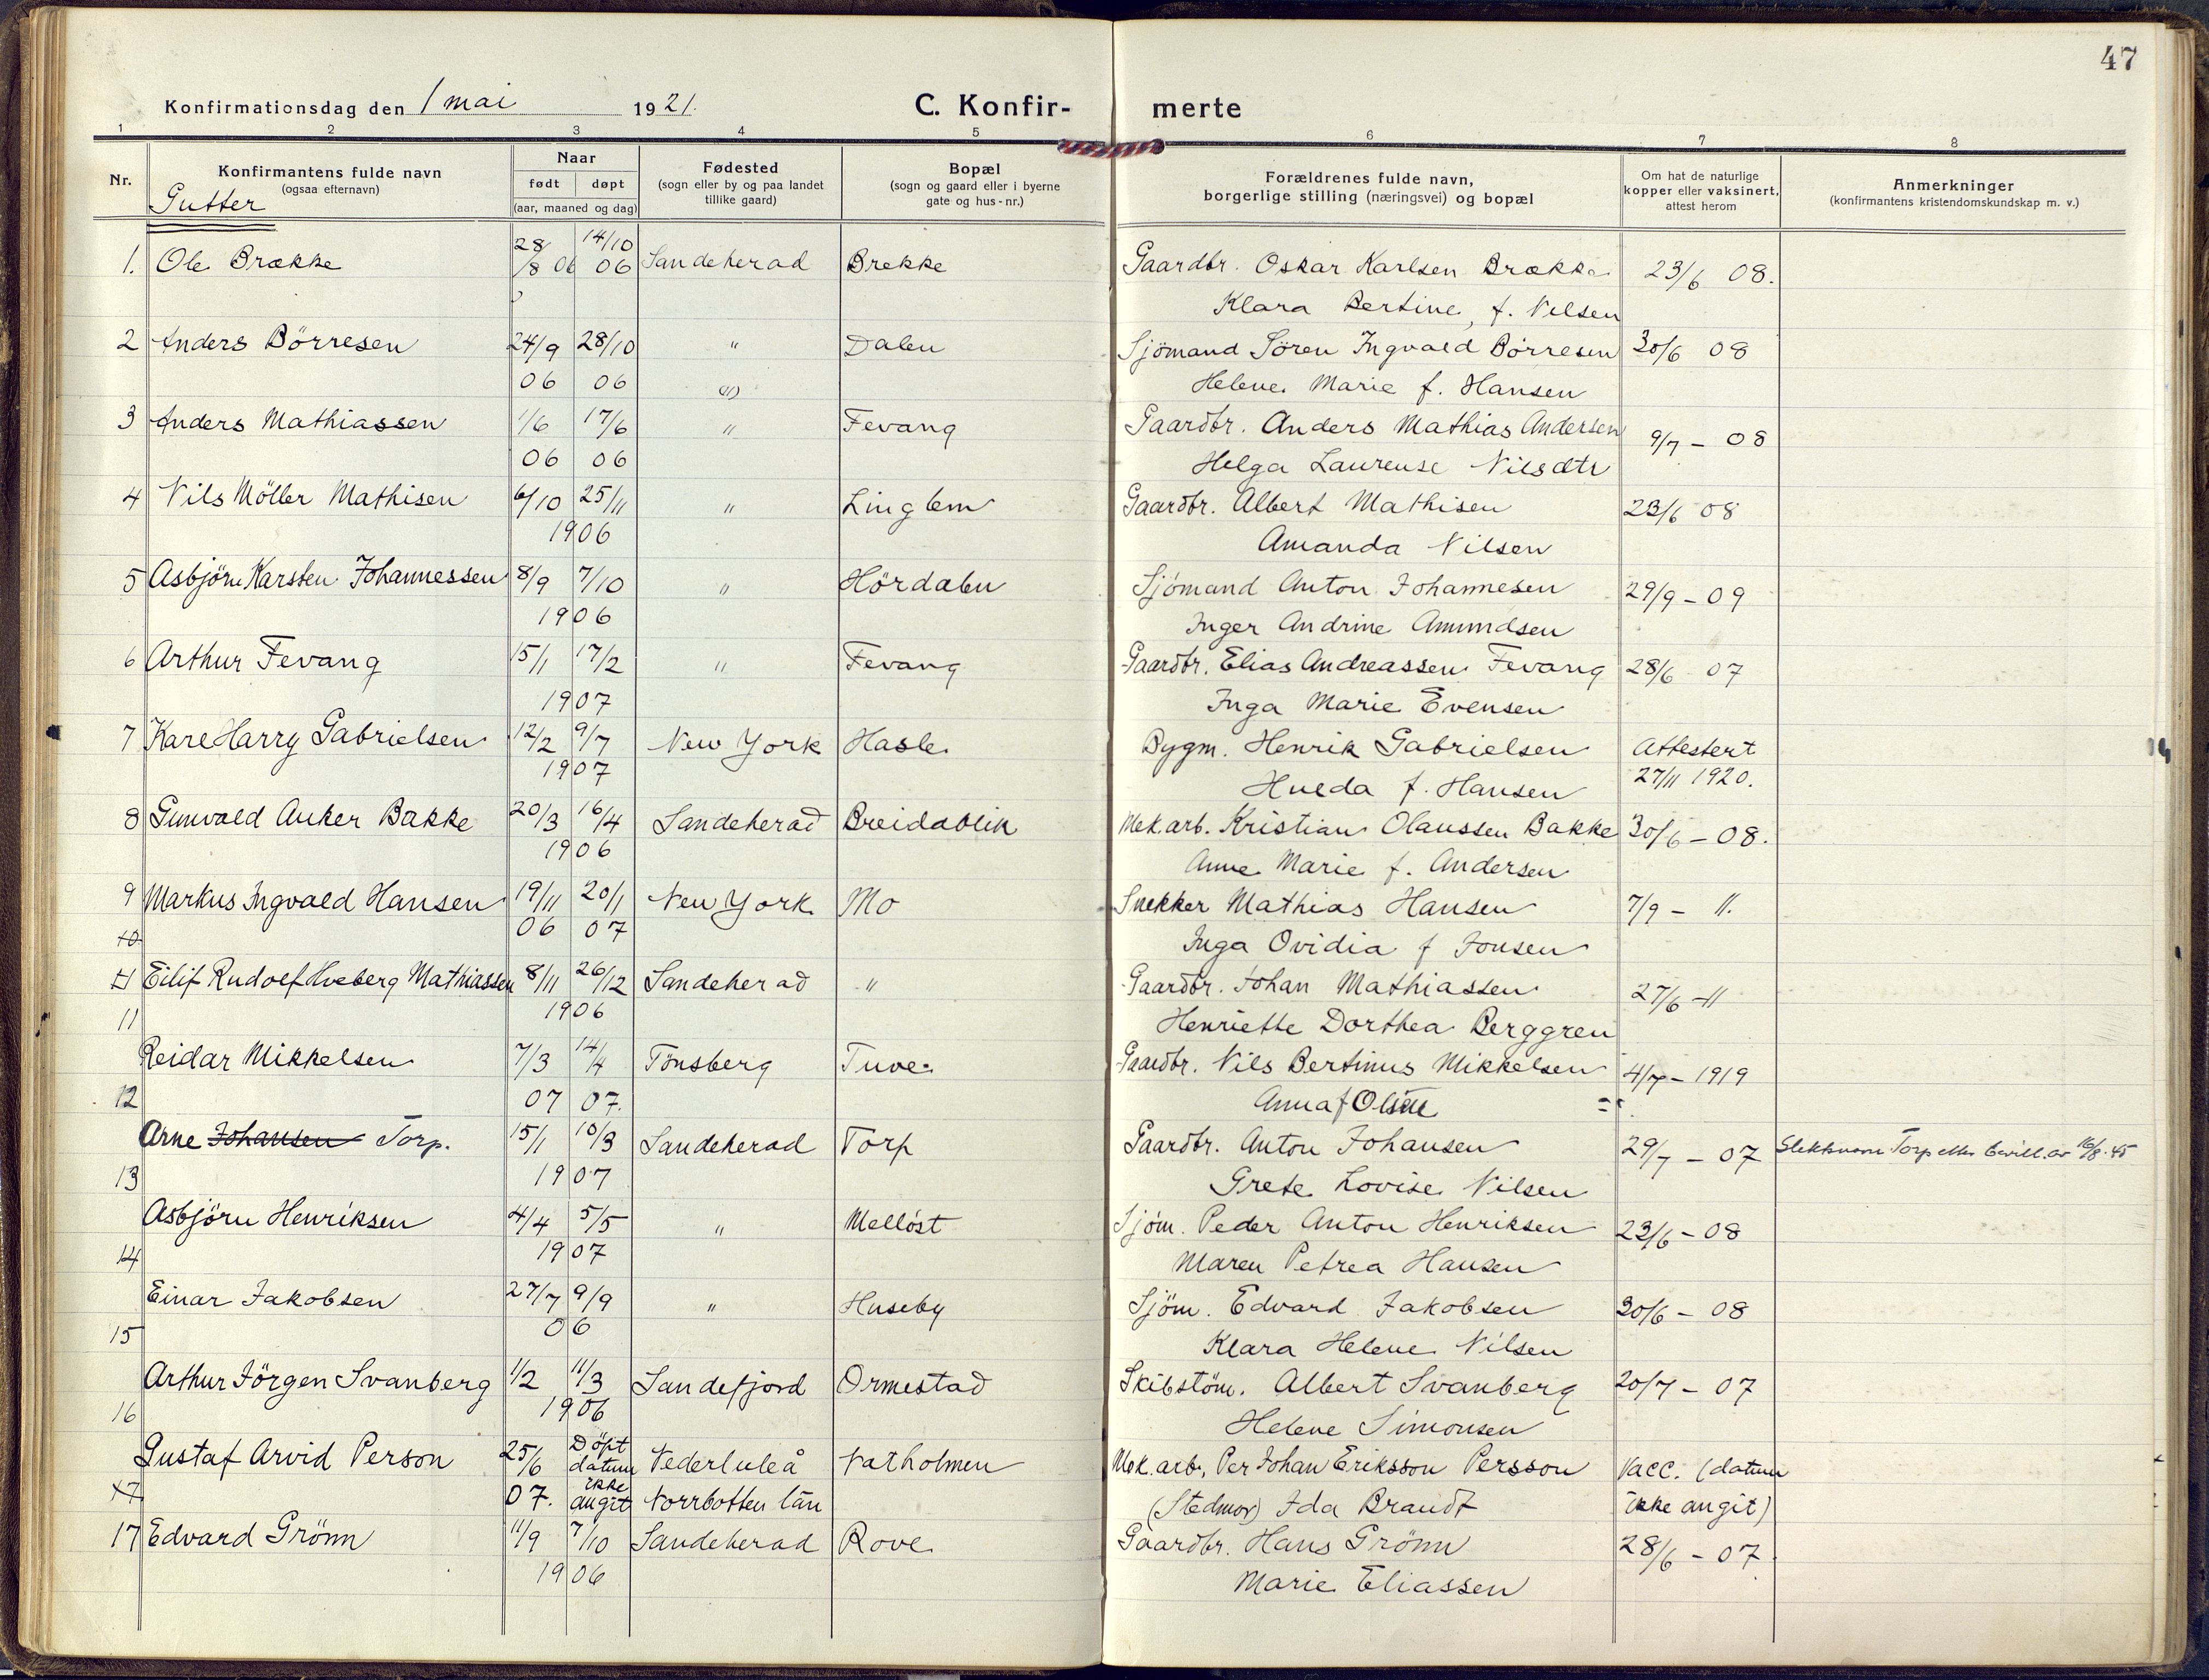 47
Konfirmationsdag den 1 mai 1921.
C. Konfir- merte
1 2 3 4 5 6 7 8
Nr.
Konfirmantens fulde navn
(ogsaa efternavn)
Gutter
Naar
født døpt
(aar, maaned og dag)
Fødested
(sogn eller by og paa landet
tillike gaard)
Bopæl
(sogn og gaard eller i byerne
gate og hus-nr.)
Forældrenes fulde navn,
borgerlige stilling (næringsvei) og bopæl
Om hat de naturlige
kopper eller vaksinert,
attest herom
Anmerkninger
(konfirmantens kristendomskundskap m. v.)
1. Ole Brække 28/8 06 14/10 06 Sandeherad Brekke Gaardbr. Oskar Karlsen Brække 23/6 08.
Klara Bertine, f. Nilsen
2 Anders Börresen 24/9 28/10 " Dalen Sjömand Sören Ingvald Börresen 30/6 08
06 06 Helene Marie f. Hansen
3 Anders Mathiassen 1/6 17/6 " Fevang Gaardbr. Anders Mathias Andersen 9/7 – 08
06 06 Helga Laurense Nilsdtr
4 Nils Möller Mathisen 6/10 25/11 " Linglem Gaardbr. Albert Mathisen 23/6 08
1906 Amanda Nilsen
5 Asbjörn Karsten Johannessen 8/9 7/10 " Hördalen Sjömand Anton Johannesen 29/9 – 09
1906 Inger Andrine Amundsen
6 Arthur Fevang 15/1 17/2 " Fevang Gaardbr. Elias Andreassen Fevang 28/6 07
1907 Inga Marie Evensen
7 Kare Harry Gabrielsen 12/2 9/7 New York Hasle Bygm. Henrik Gabrielsen Attestert
1907 Hulda f. Hansen 27/11 1920.
8 Gunvald Anker Bakke 20/3 16/4 Sandeherad Breidablik Mek.arb. Kristian Olaussen Bakke 30/6 – 08.
1906 Anne Marie f. Andersen
9 Markus Ingvald Hansen 19/11 20/1 New York Mo Snekker Mathias Hansen 7/9 – 11.
10 06 07 Inga Ovidia f Jonsen
11 Eilif Rudolf Hveberg Mathiassen 8/11 26/12 Sandeherad " Gaardbr. Johan Mathiassen 27/6 – 11
11 1906 Henriette Dorthea Berggren
Reidar Mikkelsen 7/3 14/4 Tönsberg Tuve Gaardbr. Nils Bertinus Mikkelsen 4/7 – 1919
12 07 07. Anna f Olsen
Arne Johansen Torp. 15/1 10/3 Sandeherad Torp Gaardbr. Anton Johansen 29/7 – 07 Slektsnavn Torp etter bevill. av 16/8.45
13 1907 Grete Lovise Nilsen
Asbjörn Henriksen 4/4 5/5 " Melløst Sjöm. Peder Anton Henriksen 23/6 – 08
14 1907 Maren Petrea Hansen
Einar Jakobsen 27/7 9/9 " Huseby Sjöm. Edvard Jakobsen 30/6 – 08
15 06 Klara Helene Nilsen
Arthur Jörgen Svanberg 1/2 11/3 Sandefjord Ormestad Skibstöm. Albert Svanberg 20/7 – 07
16 1906 Helene Simonsen
Gustaf Arvid Person 25/6 Döpt datum Nederluleå Natholmen Mek. arb. Per Johan Eriksson Persson Vacc. (datum
17 07. ikke angit Norrbotten län (Stedmor) Ida Brandt ikke angit)
17 Edvard Grönn 11/9 7/10 Sandeherad Rove Gaardbr. Hans Grönn 28/6 – 07
1906 Marie Eliassen